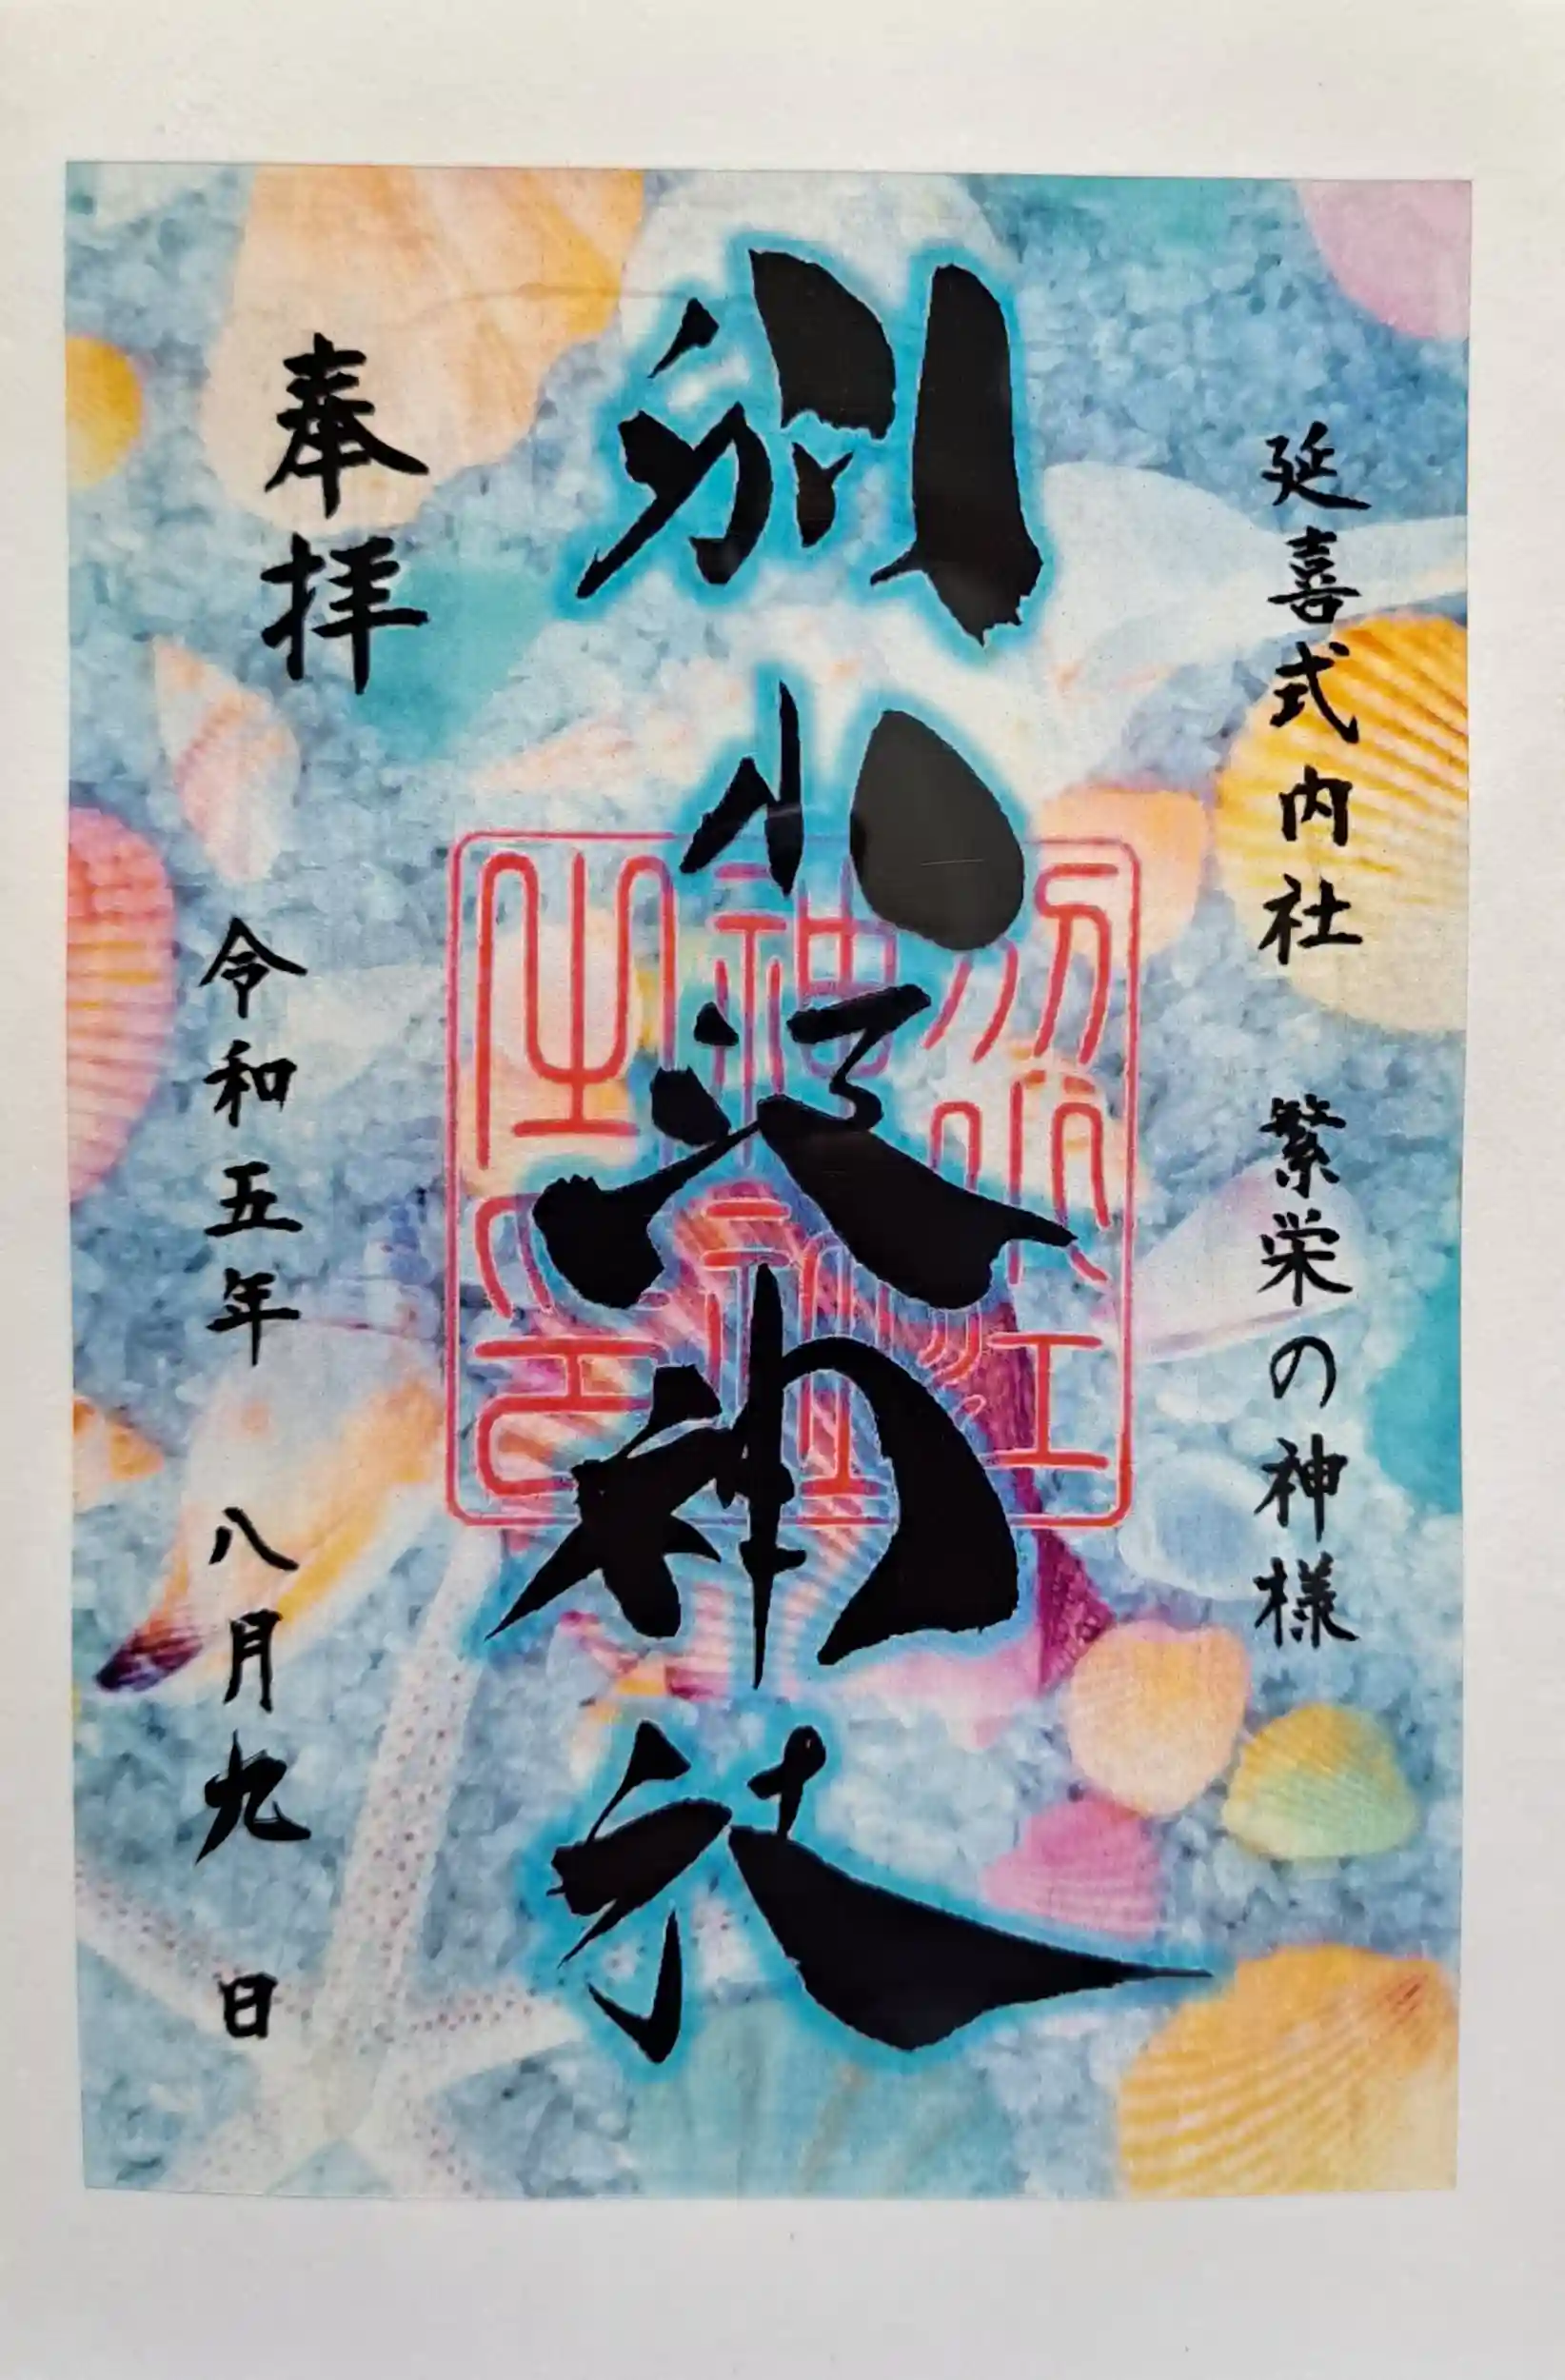 延喜式内社 繁栄の神様
別小江神社
別小江
神社
之印
奉拝
令和五年 八月九日